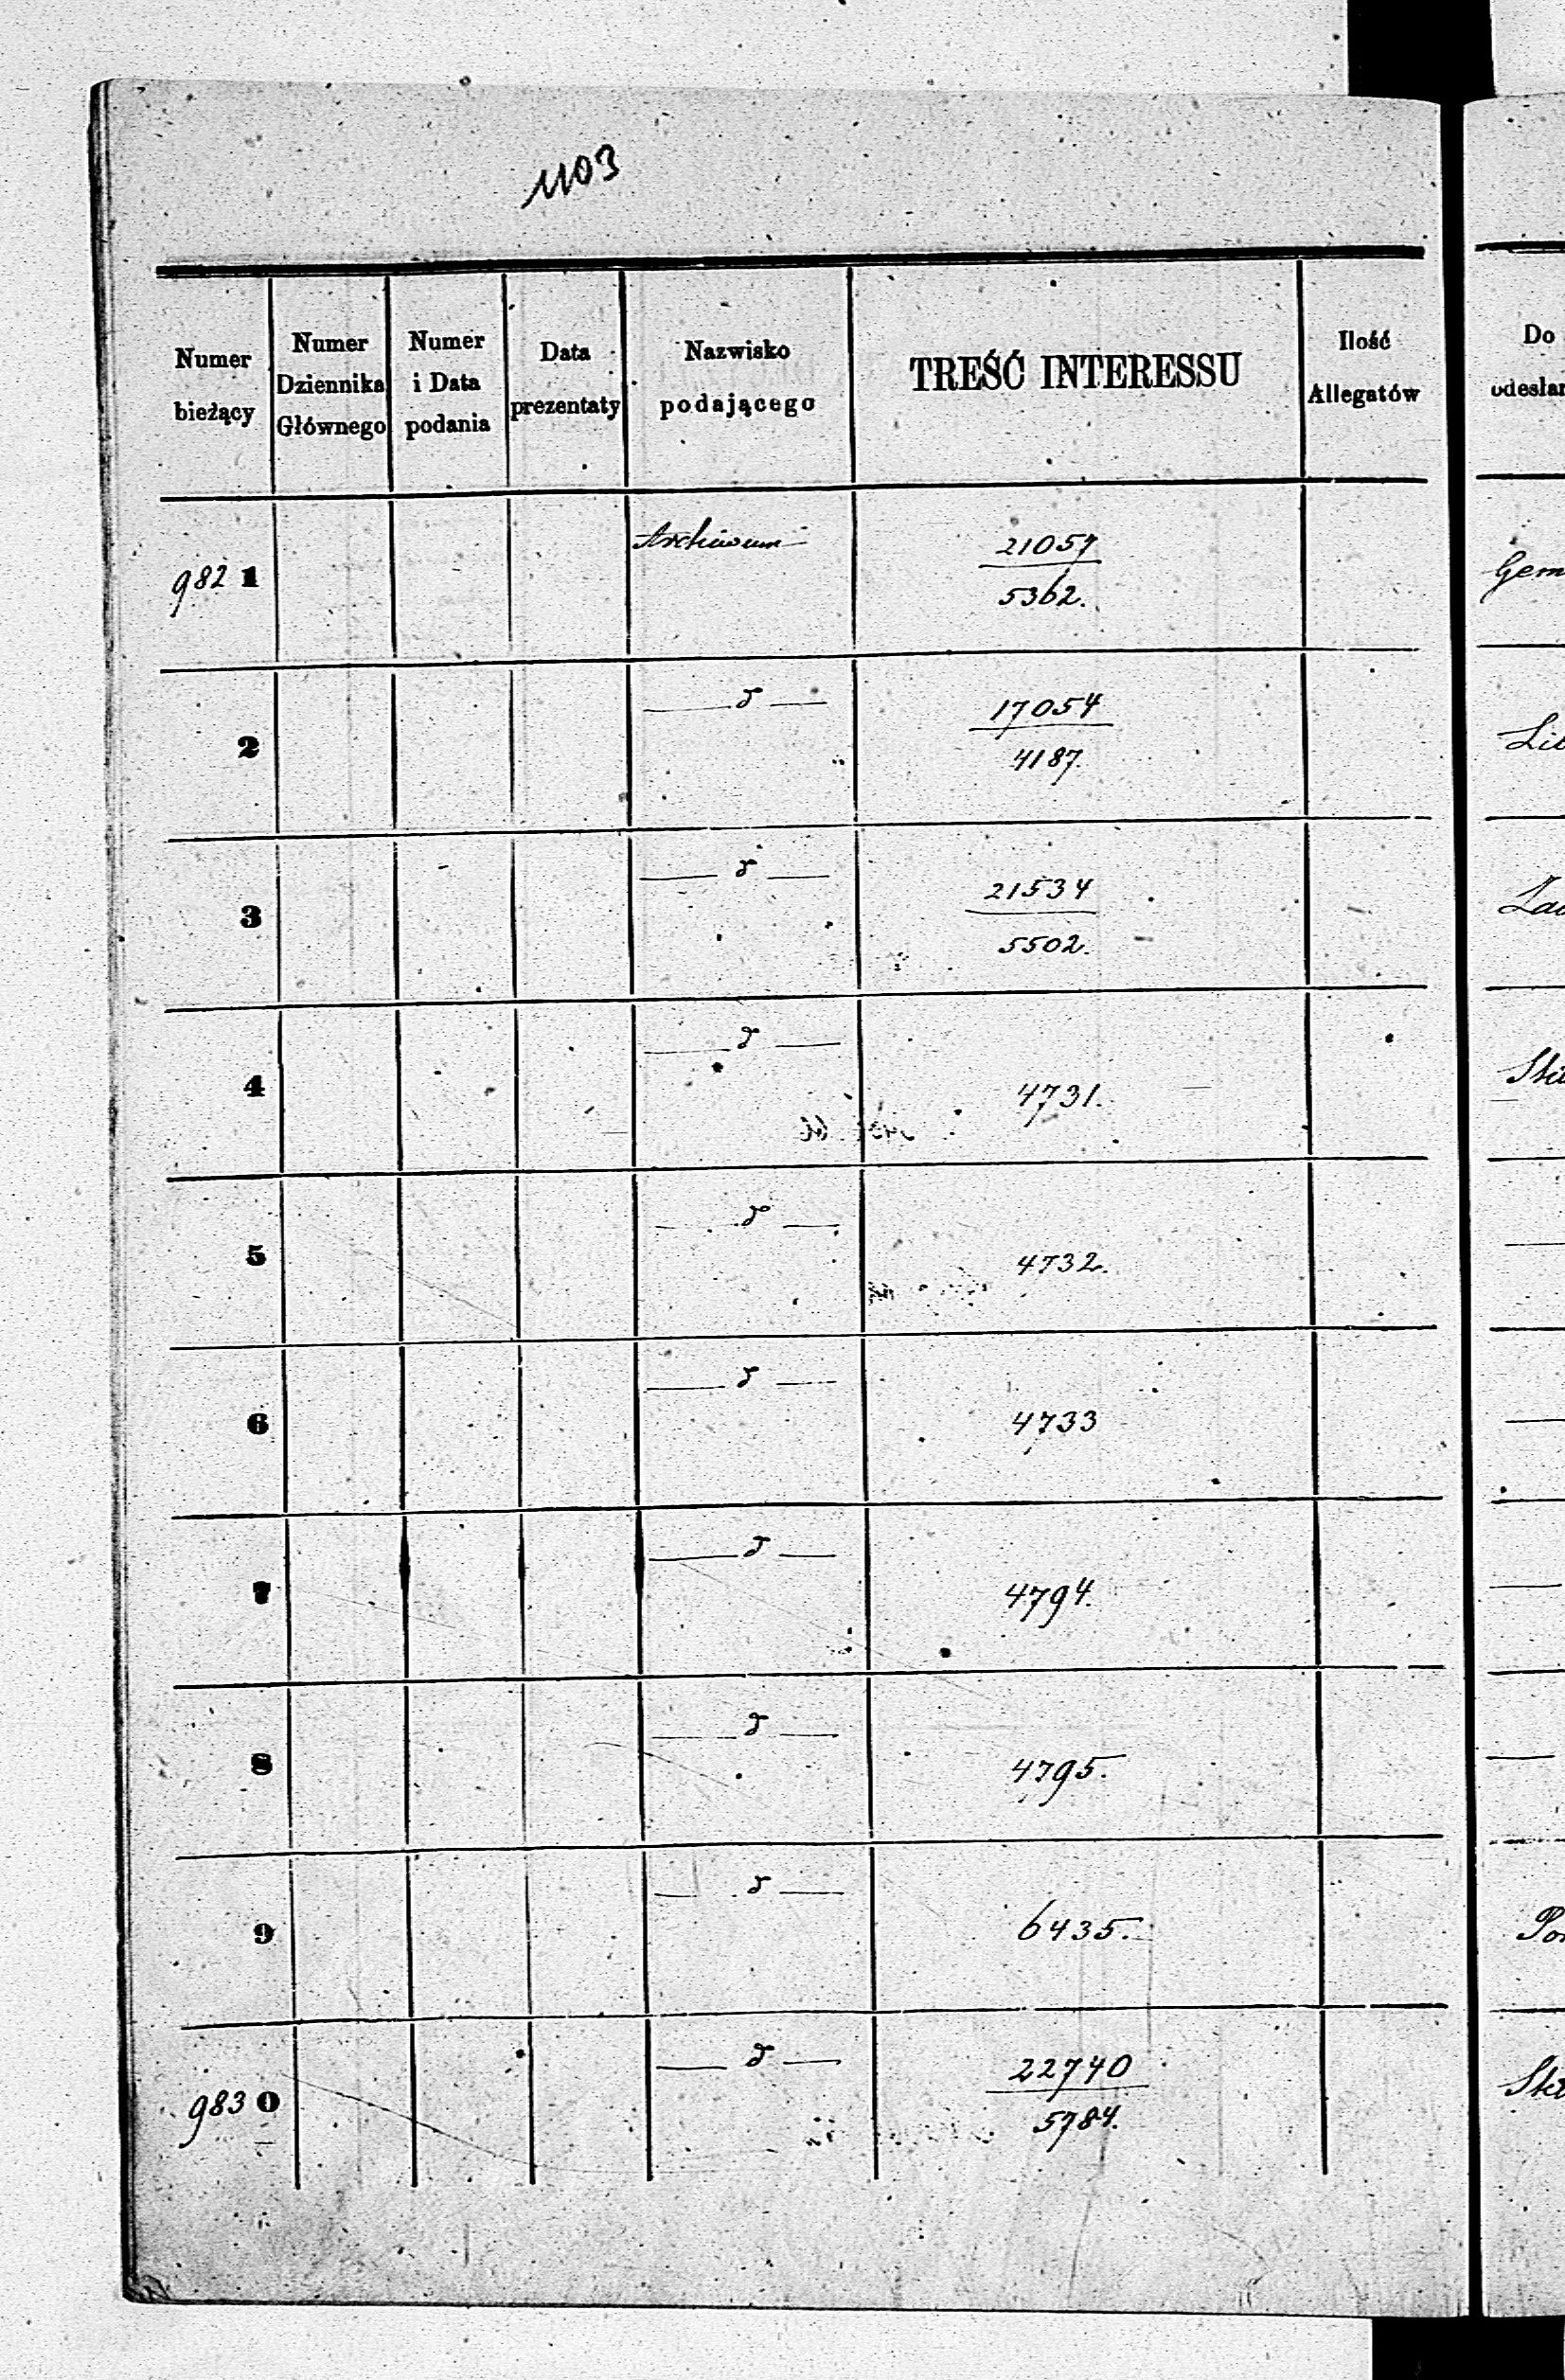 1103
Numer bieżący
Numer Dziennika Głównego
Numer i Data podania
Data prezentaty
Nazwisko podającego
TREŚĆ INTERESSU
Ilość Allegatów
Do
odesłan
982 1
Archiwum
21057
5362.
Gem
2
17054
4187
3
21534
5502.
4
4731.
5
4732.
6
4733
7
4794.
8
4795.
9
6435.
983 0
22740
5784.